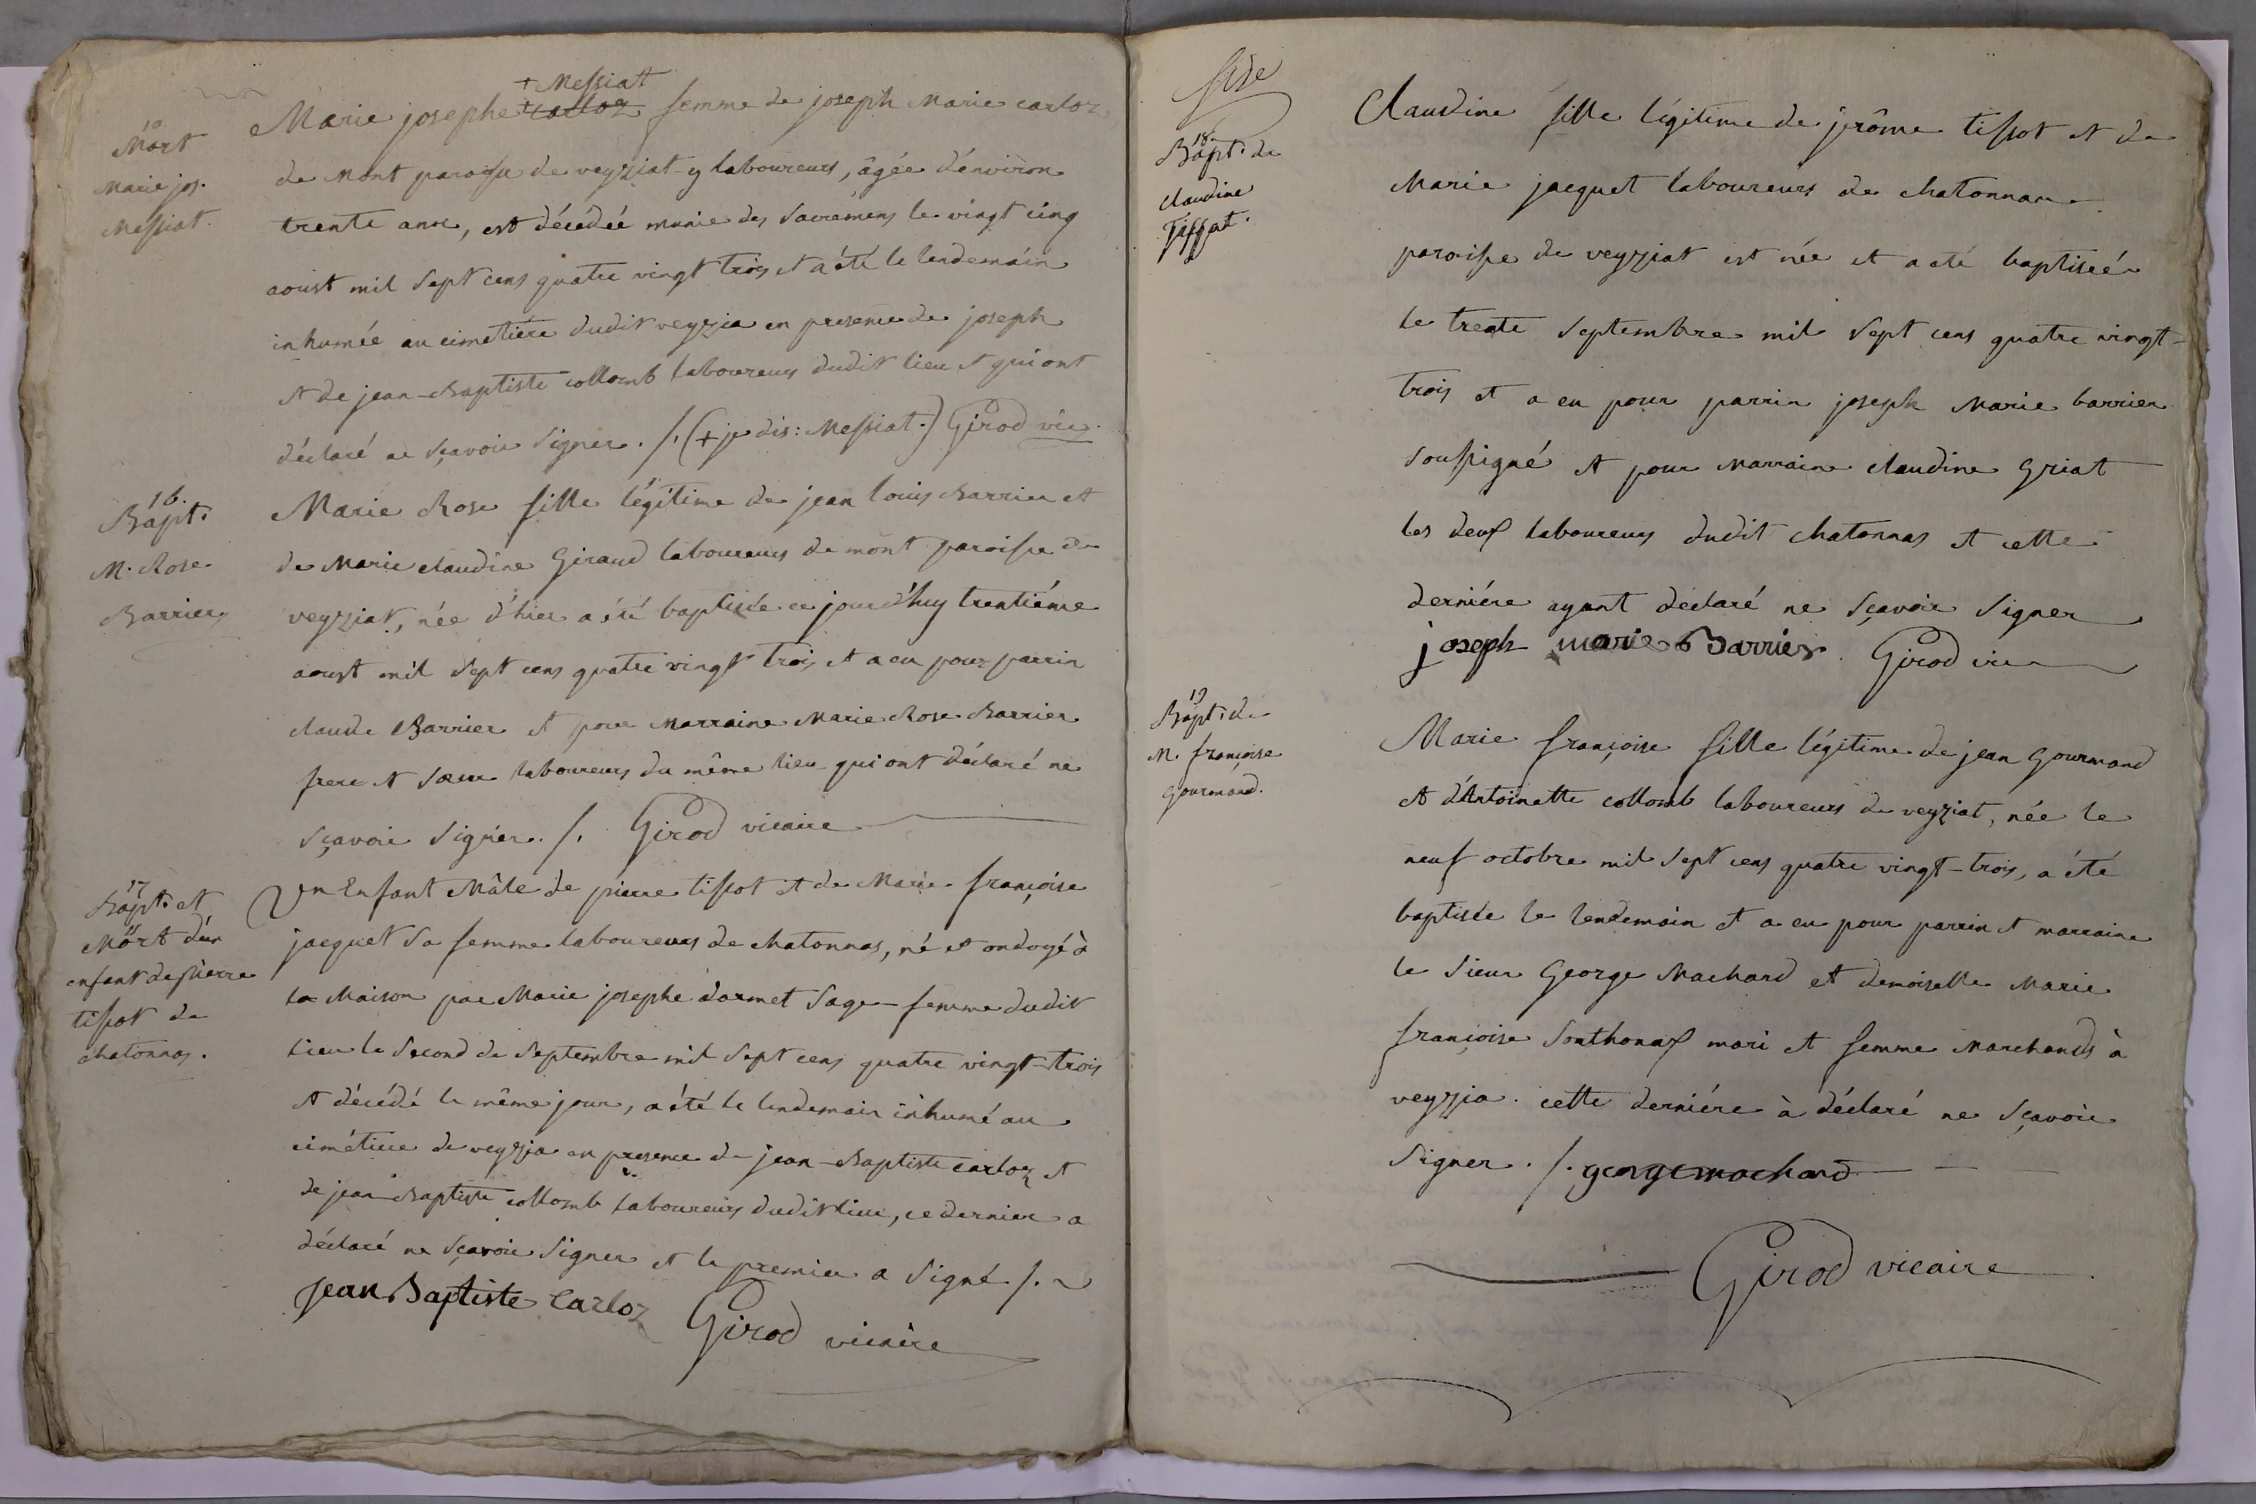 + Messiat
10
Mort
Marie jos.
Messiat.
Marie josephe + carloz femme de joseph Marie carloz
de Mont paroisse de veyziat y laboureurs, âgée d'environ
trente ans, est décédée munie des Sacremens le vingt cinq
aoust mil Sept cens quatre vingt trois et a été le lendemain
inhumée au cimetiére dudit veyzia en presence de joseph
et de jean-Baptiste collomb laboureurs dudit lieu et qui ont
déclaré ne sçavoir Signer ./. (+ je dis: Messiat.) Girod vic.
16.
Bapt.
M. Rose
Barrier
Marie Rose fille légitime de jean louis Barrier et
de Marie claudine Giraud laboureurs de mont paroisse de
veyziat, née d'hier a été baptisée ce jourd'huy trentiéme
aoust mil Sept cens quatre vingt trois et a eu pour parrin
claude Barrier et pour Marraine Marie Rose Barrier
frere et Soeur laboureurs du même lieu qui ont déclaré ne
sçavoir Signer. /. Girod vicaire
17
Bapt. et
11
Mort d'un
enfant de pierre
tissot de
chatonnas.
Un Enfant Mâle de pierre tissot et de Marie françoise
jacquet Sa femme laboureurs de chatonnas, né et ondoyé à
la Maison par Marie josephe darmet Sage-femme dudit
lieu le Second de Septembre mil Sept cens quatre vingt-trois
et décédé le même jour, a été le lendemain inhumé au
cimétiere de veyzia en presence de jean-Baptiste carloz et
de jean Baptiste collomb laboureurs dudit lieu, ce dernier a
déclaré ne Sçavoir Signer et le premier a Signé ./.
Jean Baptiste Carloz Girod vicaire
18.
Bapt. de
claudine
Tissot.
Claudine fille légitime de jerôme tissot et de
Marie jacquet laboureurs de chatonnas
paroisse de veyziat est née et a été baptiseé
le trente Septembre mil Sept cens quatre vingt-
trois et a eu pour parrin joseph Marie barrier
soussigné et pour Marraine claudine Griat
les deux laboureurs dudit chatonnas et cette
derniére ayant déclaré ne Sçavoir Signer
joseph marie Barrier. Girod vic
19
Bapt. de
M. françoise
Gourmand.
Marie françoise fille légitime de jean Gourmand
et d'Antoinette collomb laboureurs de veyziat, née le
neuf octobre mil Sept cens quatre vingt-trois, a été
baptisée le lendemain et a eu pour parrin et marraine
le Sieur George Machard et demoiselle Marie
françoise Sonthonax mari et femme Marchands à
veyzia. cette derniére à déclaré ne Sçavoir
Signer ./. george machard
Girod vicaire